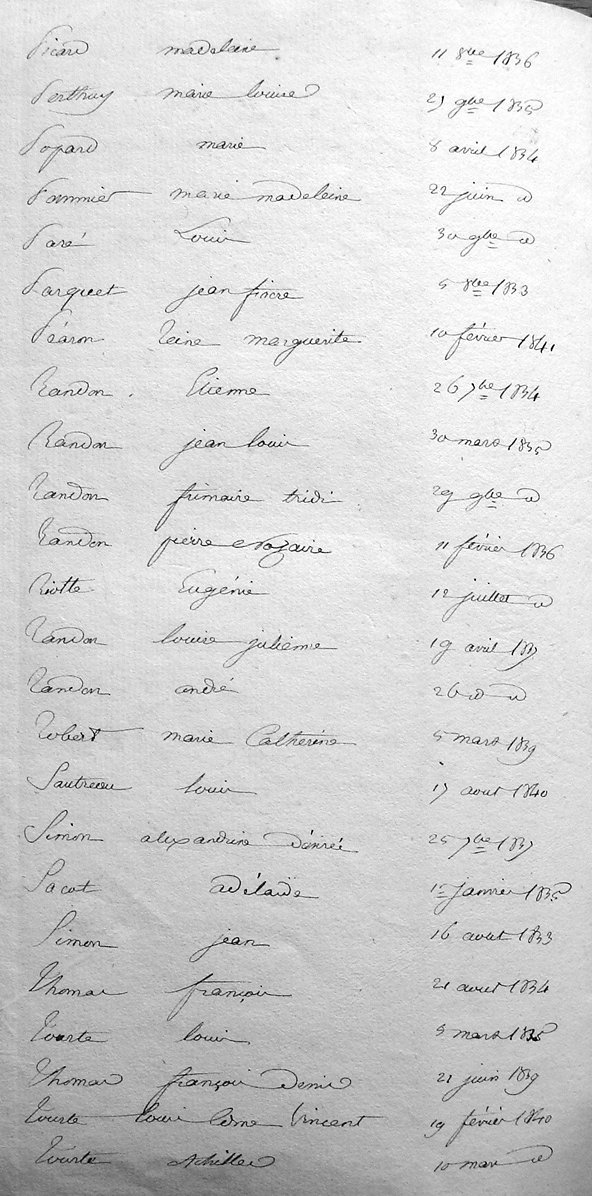 Picard madeleine 11 8bre 1836
Perthuy marie louise 27 9bre 1835
Popard marie 8 avril 1834
Pommier marie madeleine 22 juin d
Paré Louis 30 9bre d
Parquet jean pierre 5 8bre 1833
Péaron Reine marguerite 10 février 1841
Randon Etienne 26 7bre 1834
Randon jean louis 30 mars 1835
Randon primaire tridi 29 9bre d
Randon pierre Nazaire 11 février 1836
Riotte Eugénie 12 juillet d
Randon louise julienne 19 avril 1837
Randon andré 26 d d
Robert marie Catherine 5 mars 1839
Sautreau louis 17 aout 1840
Simon alexandrine Désirée 25 7bre 1837
Sacot adélaide 15 janvier 1835
Simon jean 16 aout 1833
Thomas françois 21 aout 1834
Tourte louis 3 mars 1835
Thomas françois Denis 21 juin 1839
Tourte louis Côme Vincent 19 février 1840
Tourte Achilles 10 mars d